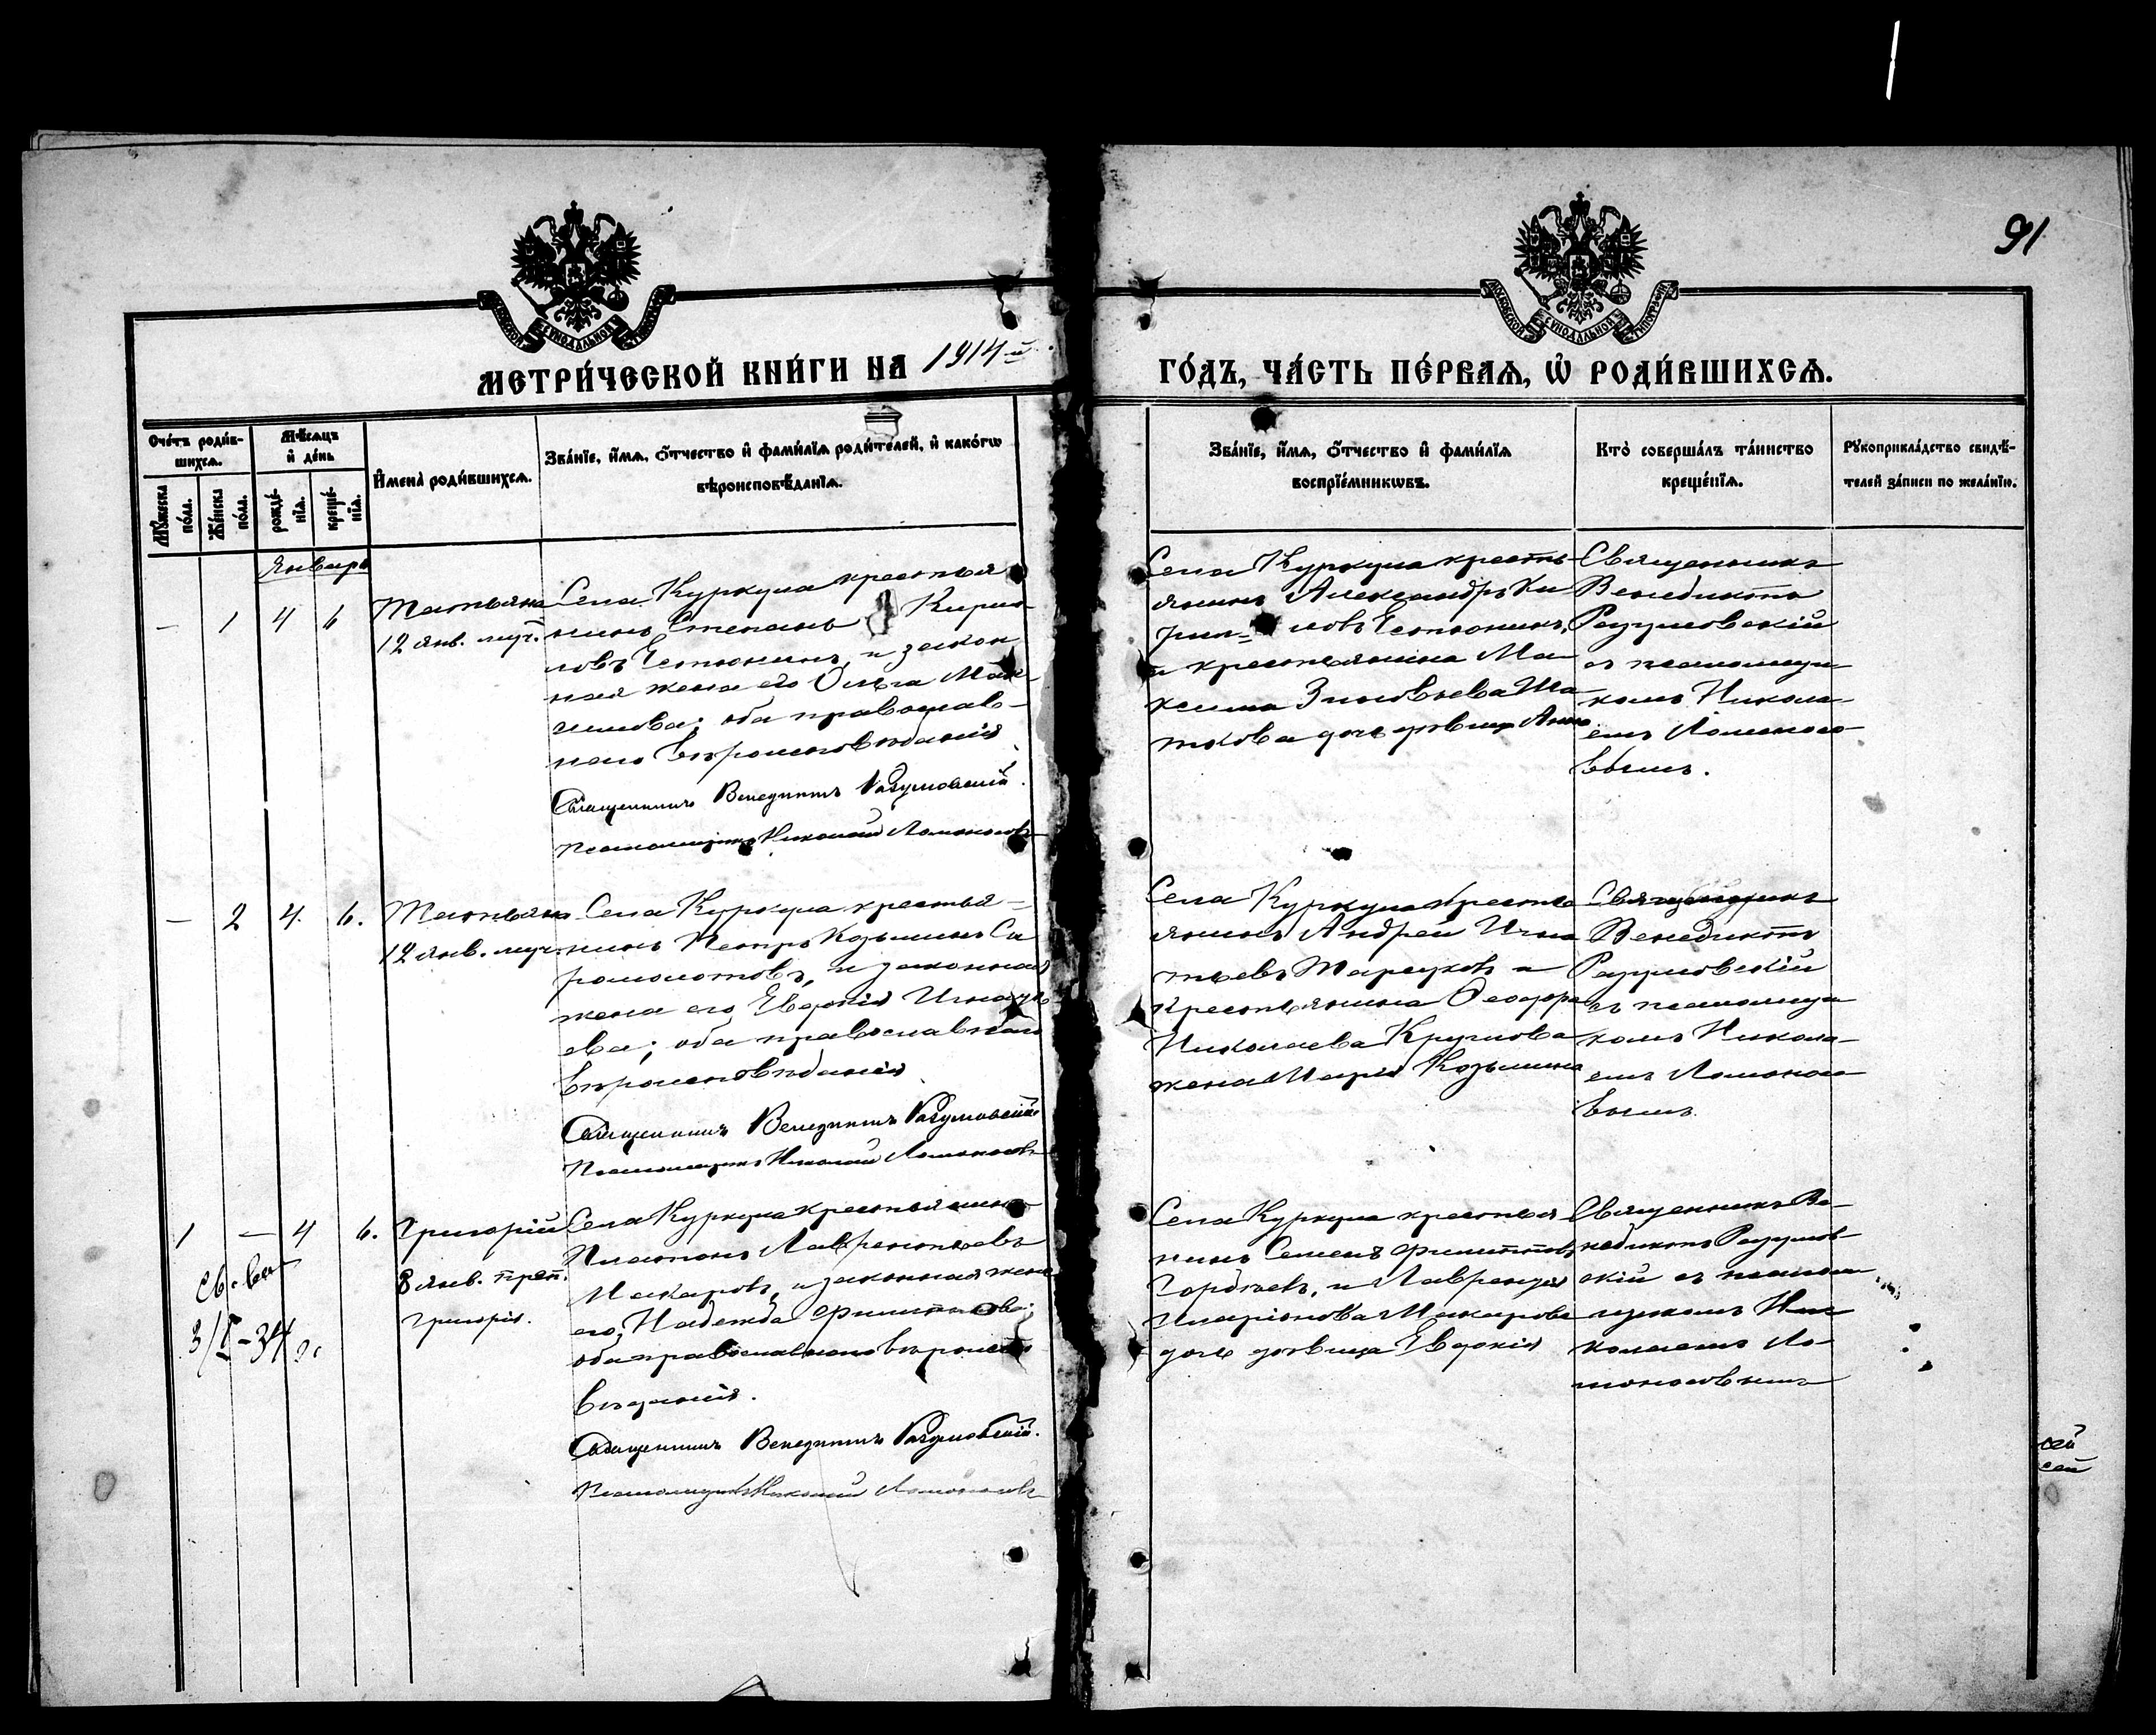 91
МЕТРИ́ЧЕСКОЙ КНИ́ГИ НА 1914 й
ГО́ДЪ, ЧА́СТЬ ПЕ́РВАѦ, Ѡ҆ РОДИ́ВШИХСѦ.
Сче́тъ роди́в-
шихсѧ.
Мѣ́сѧцъ
и҆ де́нь
Мꙋ́жеска по́ла.
Же́нска по́ла.
рожде́-
нїѧ.
креще́-
нїѧ.
И҆мена̀ роди́вшихсѧ.
Зва́нїе, и҆́мѧ, ѻ҆́тчество и҆ фами́лїѧ роди́телей, и҆ како́гѡ
вѣроисповѣ́данїѧ.
Зва́нїе, и҆́мѧ, ѻ҆́тчество и҆ фами́лїѧ
воспрїе́мникѡвъ.
Кто̀ соверша́лъ та́инство
креще́нїѧ.
Рꙋкоприкла́дство свидѣ́-
телей за́писи по жела́нїю.
Январь
— 1 4 6
Татьяна
12 янв. муч.
Села Куркуля крестья
нинъ Степанъ Кирил
ловъ Естюнинъ, и закон
ная жена его Ольга Мак
имова; оба православ-
наго вѣроисповѣданія
Священникъ Венедиктъ Разумовскій.
Псаломщикъ Николай Ломоносовъ
Села Куркуля кресть
янинъ Александръ Ки
рил= ловъ Естюнинъ,
и крестьянина Ма-
ксима Зиновьева Ша
това дочь дѣвица Анна
Священникъ
Венедиктъ
Разумовскій
съ псаломщи
комъ Никола-
емъ Ломоносо
вымъ.
— 2 4. 6.
Татьяна
12 янв. муч.
Села Куркуля крестья-
нинъ Петръ Козьминъ Си
ромолотовъ, и законная
жена его Евдокія Игнать
ева; оба православнаго
вѣроисповѣданія
Священникъ Венедиктъ Разумовскій
Псаломщикъ Николай Ломоносовъ
Села Куркуля кресть
янинъ Андрей Игна
тьевъ и
Крестьянина Ѳеодора
Николаева Круглова
жена Марія Козьмина
Священникъ
Венедиктъ
Разумовскій
съ псаломщи
комъ Никола-
емъ Ломоносо
вымъ
1 — 4 6.
Григорій
8 янв. преп.
Григорія.
3/V-34 г.
Села Куркуля крестьянинъ
Платонъ Лаврентьевъ
Макаровъ, и законная жена
его Надежда Филиппова;
оба православнаго вѣроиспо
вѣданія.
Священникъ Венедиктъ Разумовскій.
Псаломщикъ Николай Ломоносовъ
Села Куркуля крестья
нинъ Семенъ Филипповъ
Горбачевъ, и Лаврентія
Иларіонова Макарова
дочь дѣвица Евдокія
Священникъ Ве-
недиктъ Разумов
скій съ псалом
щикомъ Ни
колаемъ Ло-
моносовымъ